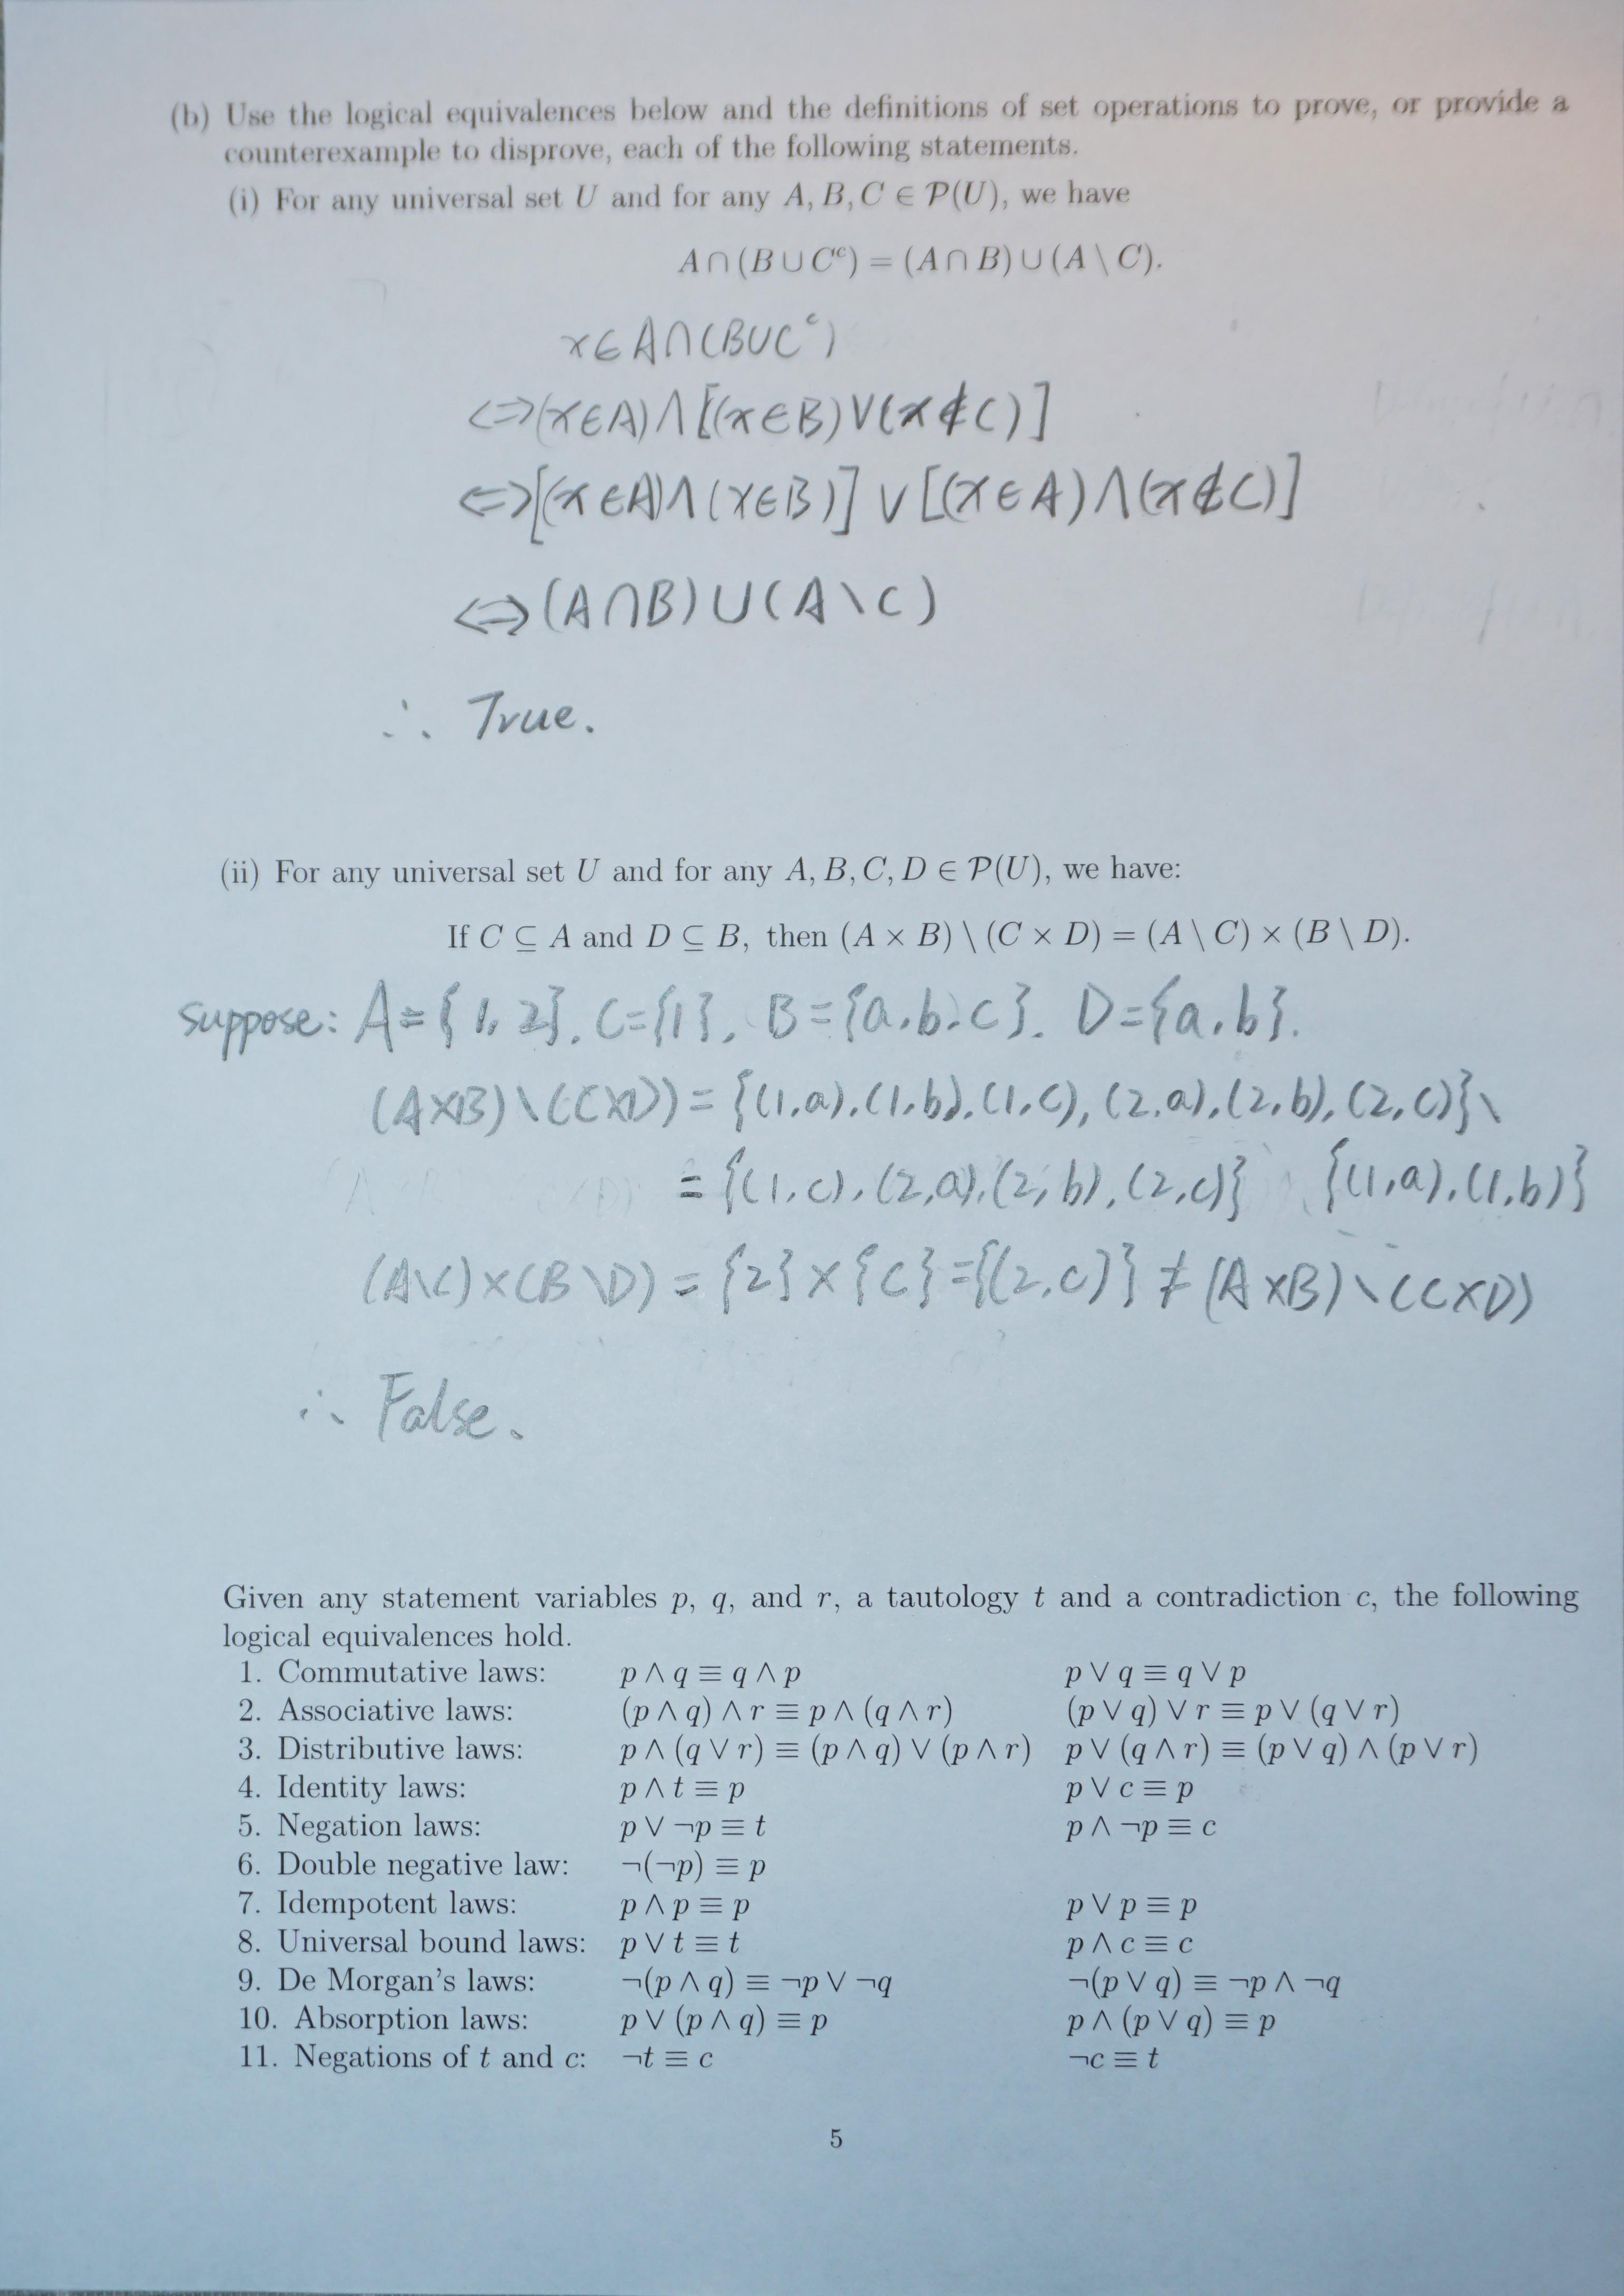 (b) Use the logical equivalences below and the definitions of set operations to prove, or provide a
counterexample to disprove, each of the following statements.
(i) For any universal set U and for any A, B, C ∈ P(U), we have
A ∩ (B ∪ Cᶜ) = (A ∩ B) ∪ (A \ C).
x∈A∩(B∪Cᶜ)
⇔(x∈A)∧[(x∈B)∨(x∉C)]
⇔[(x∈A)∧(x∈B)]∨[(x∈A)∧(x∉C)]
⇔(A∩B)∪(A\C)
∴ True.
(ii) For any universal set U and for any A, B, C, D ∈ P(U), we have:
If C ⊆ A and D ⊆ B, then (A × B) \ (C × D) = (A \ C) × (B \ D).
suppose: A={1,2}, C={1}, B={a,b,c}. D={a,b}.
(A×B)\(C×D) = {(1,a),(1,b),(1,c),(2,a),(2,b),(2,c)}\
= {(1,c),(2,a),(2,b),(2,c)} {(1,a),(1,b)}
(A\C)×(B\D) = {2}×{c}={(2,c)} ≠ (A×B)\(C×D)
∴ False.
Given any statement variables p, q, and r, a tautology t and a contradiction c, the following
logical equivalences hold.
1. Commutative laws: p ∧ q ≡ q ∧ p p ∨ q ≡ q ∨ p
2. Associative laws: (p ∧ q) ∧ r ≡ p ∧ (q ∧ r) (p ∨ q) ∨ r ≡ p ∨ (q ∨ r)
3. Distributive laws: p ∧ (q ∨ r) ≡ (p ∧ q) ∨ (p ∧ r) p ∨ (q ∧ r) ≡ (p ∨ q) ∧ (p ∨ r)
4. Identity laws: p ∧ t ≡ p p ∨ c ≡ p
5. Negation laws: p ∨ ¬p ≡ t p ∧ ¬p ≡ c
6. Double negative law: ¬(¬p) ≡ p
7. Idempotent laws: p ∧ p ≡ p p ∨ p ≡ p
8. Universal bound laws: p ∨ t ≡ t p ∧ c ≡ c
9. De Morgan's laws: ¬(p ∧ q) ≡ ¬p ∨ ¬q ¬(p ∨ q) ≡ ¬p ∧ ¬q
10. Absorption laws: p ∨ (p ∧ q) ≡ p p ∧ (p ∨ q) ≡ p
11. Negations of t and c: ¬t ≡ c ¬c ≡ t
5